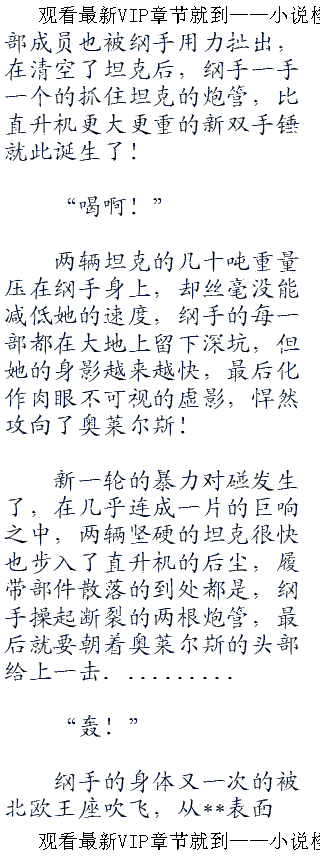 观看最新VIP章节就到——小说
部成员也被纲手用力扯出，
在清空了坦克后，纲手一手
一个的抓住坦克的炮管，比
直升机更大更重的新双手锤
就此诞生了！
“喝啊！”
两辆坦克的几十吨重量
压在纲手身上，却丝毫没能
减低她的速度，纲手的每一
部都在大地上留下深坑，但
她的身影越来越快，最后化
作肉眼不可视的虚影，悍然
攻向了奥莱尔斯！
新一轮的暴力对碰发生
了，在几乎连成一片的巨响
之中，两辆坚硬的坦克很快
也步入了直升机的后尘，履
带部件散落的到处都是，纲
手操起断裂的两根炮管，最
后就要朝着奥莱尔斯的头部
给上一击．．．．．．．．．．
“轰！”
纲手的身体又一次的被
北欧王座吹飞，从**表面
观看最新VIP章节就到——小说